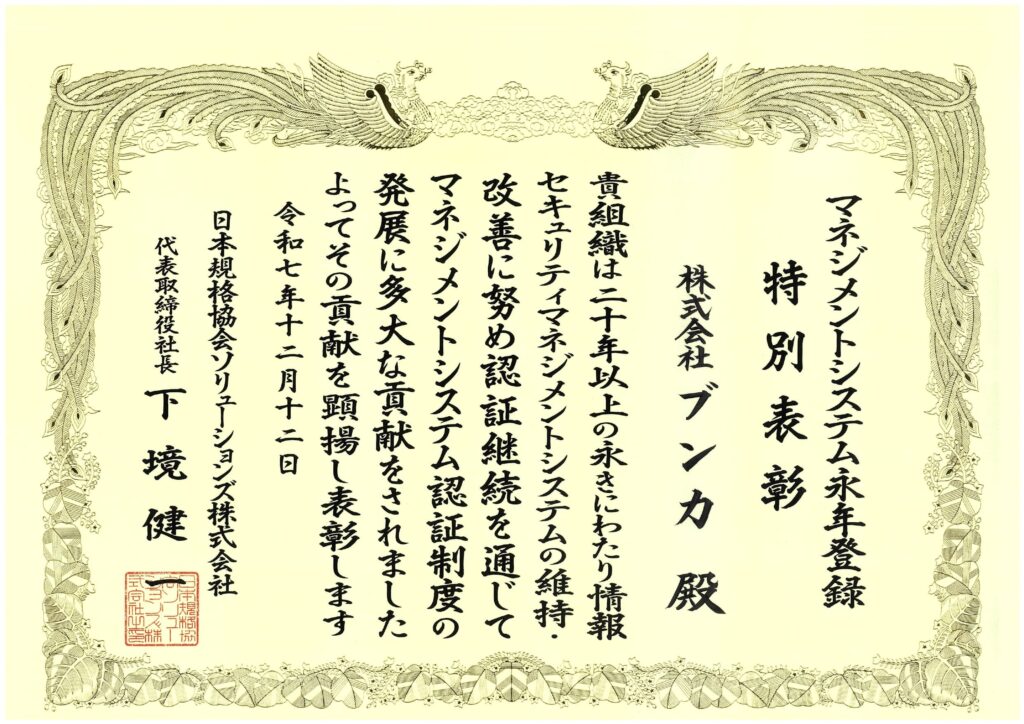 マネジメントシステム永年登録
特別表彰
株式会社ブンカ 殿
貴組織は二十年以上の永きにわたり情報
セキュリティマネジメントシステムの維持・
改善に努め認証継続を通じて
マネジメントシステム認証制度の
発展に多大な貢献をされました
よってその貢献を顕揚し表彰します
令和七年十二月十二日
日本規格協会ソリューションズ株式会社
代表取締役社長 下境健一